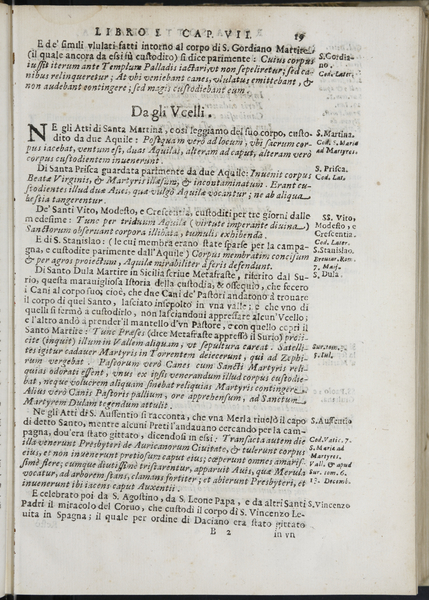 LIBRO I. CAP. VII. 19
E de' simili vlulati fatti intorno al corpo di S. Gordiano Martire
(il quale ancora da essi fù custodito) si dice parimente: Cuius corpus
iussit iterum ante Templum Palladis iactari, vt non sepeliretur; sed ca-
nibus relinqueretur; At vbi veniebant canes, vlulatus emittebant, &
non audebant contingere; sed magis custodiebant eum.
S. Gordia-
no.
Cod. Later.
Da gli Vcelli.
NE gli Atti di Santa Martina, così leggiamo del suo corpo, custo-
dito da due Aquile: Postquam verò ad locum, vbi sacrum cor-
pus iacebat, ventum est, duas Aquilas, alteram ad caput, alteram verò
corpus custodientem inuenerunt.
S. Martina.
Cod. S. Mariæ
ad Martyres.
Di Santa Prisca guardata parimente da due Aquile: Inuenit corpus
Beatæ Virginis, & Martyris illæsum, & incontaminatum. Erant cu-
stodientes illud duæ Aues, quæ vulgò Aquilæ vocantur; ne ab aliqua
bestia tangerentur.
S. Prisca.
Cod. Lat.
De' Santi Vito, Modesto, e Crescentia, custoditi per tre giorni dalle
medesime: Tunc per triduum Aquilæ (virtute imperante diuina)
Sanctorum obseruant corpora illibata, tumulis exhibenda.
SS. Vito,
Modesto, e
Crescentia.
Cod. Later.
E di S. Stanislao: (le cui membra erano state sparse per la campa-
gna, e custodite parimente dall'Aquile) Corpus membratim concisum
& per agros proiectum, Aquilæ mirabiliter à feris defendunt.
S. Stanislao.
Breuiar. Rom.
7. Maij.
Di Santo Dula Martire in Sicilia scriue Metafraste, riferito dal Su-
rio, questa marauigliosa Istoria della custodia, & ossequio, che fecero
i Cani al corpo suo; cioè, che due Cani de' Pastori andarono à trouare
il corpo di quel Santo, lasciato insepolto in vna valle; e che vno di
quelli si fermò à custodirlo, non lasciandoui appressare alcun'Vcello;
e l'altro andò à prender'il mantello d'vn Pastore, e con quello coprì il
Santo Martire: Tunc Præses (dice Metafraste appresso il Surio) præ-
cite (inquit) illum in Vallem aliquam, vt sepultura careat. Satelli-
tes igitur cadauer Martyris in Torrentem deiecerunt, qui ad Zephi-
rum vergebat. Pastorum verò Canes cum Sancti Martyris reli-
quias odorati essent, vnus ex ipsis venerandum illud corpus custodie-
bat, neque volucrem aliquam sinebat reliquias Martyris contingere.
Alius verò Canis Pastoris pallium, ore apprehensum, ad Sanctum
Martyrem Dulam tegendum attulit.
S. Dula.
Ne gli Atti di S. Aussentio si racconta, che vna Merla riuelò il capo
di detto Santo, mentre alcuni Preti l'andauano cercando per la cam-
pagna, dou'era stato gittato, dicendosi in essi: Transacta autem die
illa venerunt Presbyteri de Auricanorum Ciuitate, & tulerunt corpus
eius, et non inuenerunt pretiosum caput eius; cœperunt omnes amaris-
simè flere; cumque diutissimè tristarentur, apparuit Auis, quæ Merula
vocatur, ad arborem stans, clamans fortiter; et abierunt Presbyteri, et
inuenerunt ibi iacens caput Auxentii.
S. Aussentio
Cod. Vatic. 7.
S. Mariæ ad
Martyres.
Vall. & apud
Sur. tom. 6.
13. Decemb.
E celebrato poi da S. Agostino, da S. Leone Papa, e da altri Santi
Padri il miracolo del Coruo, che custodì il corpo di S. Vincenzo Le-
uita in Spagna; il quale per ordine di Daciano era stato gittato
S. Vincenzo
B 2 in vn